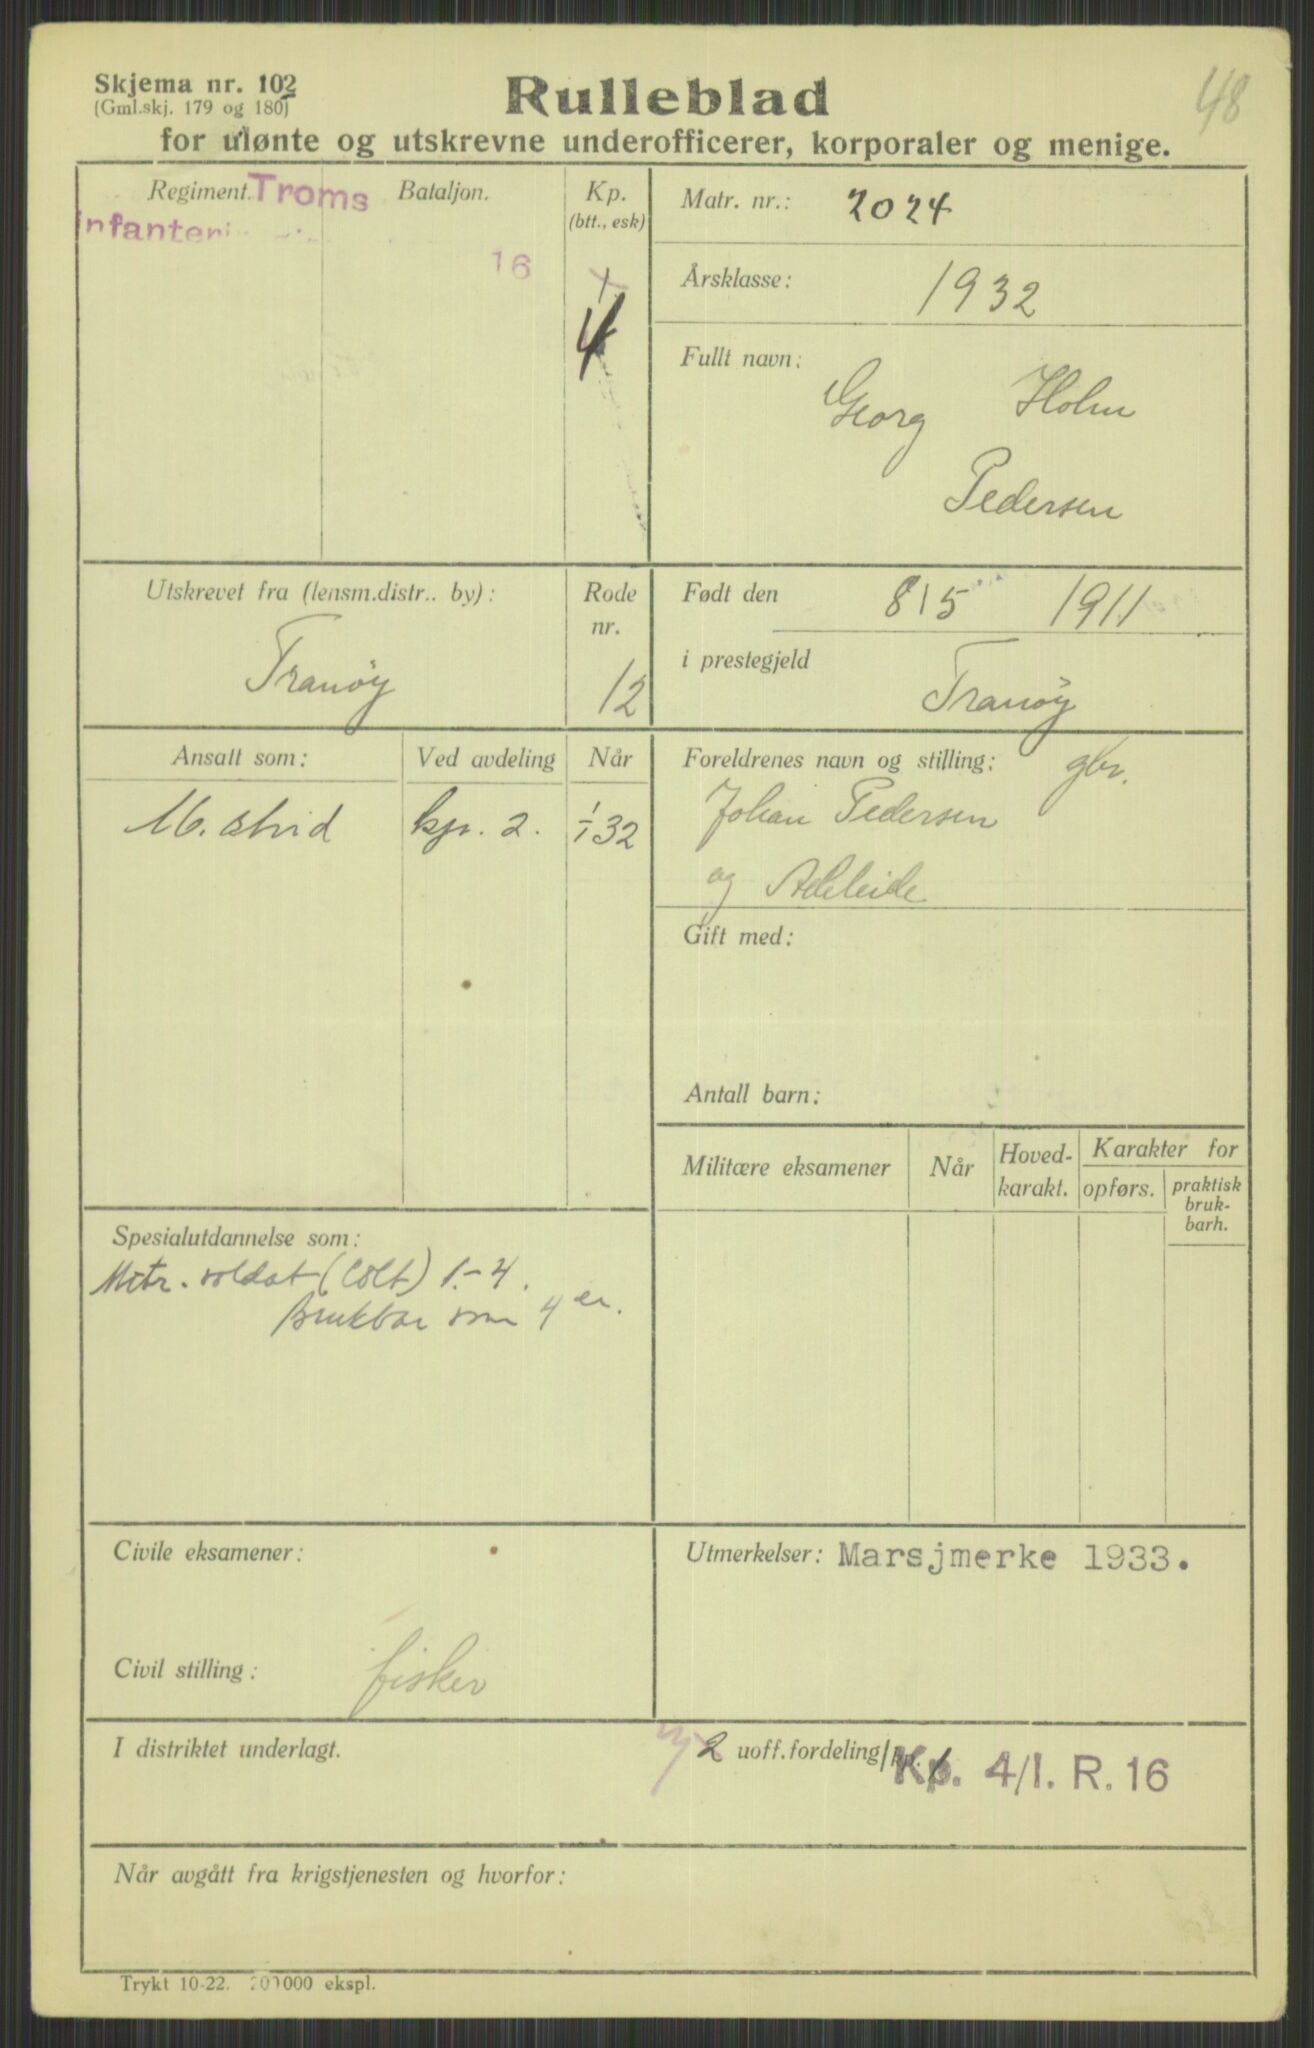 Skjema nr. 102
(Gml.skj. 179 og 180)
48
Rulleblad
for ulønte og utskrevne underofficerer, korporaler og menige.
Regiment. Troms
Infanteri
Bataljon.
16
Kp.
(btt., esk)
4
Matr. nr.: 2024
Årsklasse: 1932
Fullt navn:
Georg Holm
Pedersen
Utskrevet fra (lensm.distr.. by):
Tranøy
Rode
nr.
12
Født den 8/5 1911
i prestegjeld Tranøy
Ansatt som: Ved avdeling Når
M. kp. 2. 1/1 32
Foreldrenes navn og stilling: gbr.
Johan Pedersen
og Adeleide
Gift med:
Antall barn:
Militære eksamener
Når
Hoved-
karakt.
Karakter for
opførs.
praktisk
bruk-
barh.
Spesialutdannelse som:
Mitr. soldat (Colt) 1.-4.
Brukbar som 4 er.
Civile eksamener:
Civil stilling: fisker
Utmerkelser: Marsjmerke 1933.
I distriktet underlagt.
2 uoff.fordeling/kp. Kp. 4/I. R. 16
Når avgått fra krigstjenesten og hvorfor:
Trykt 10-22. 200000 ekspl.